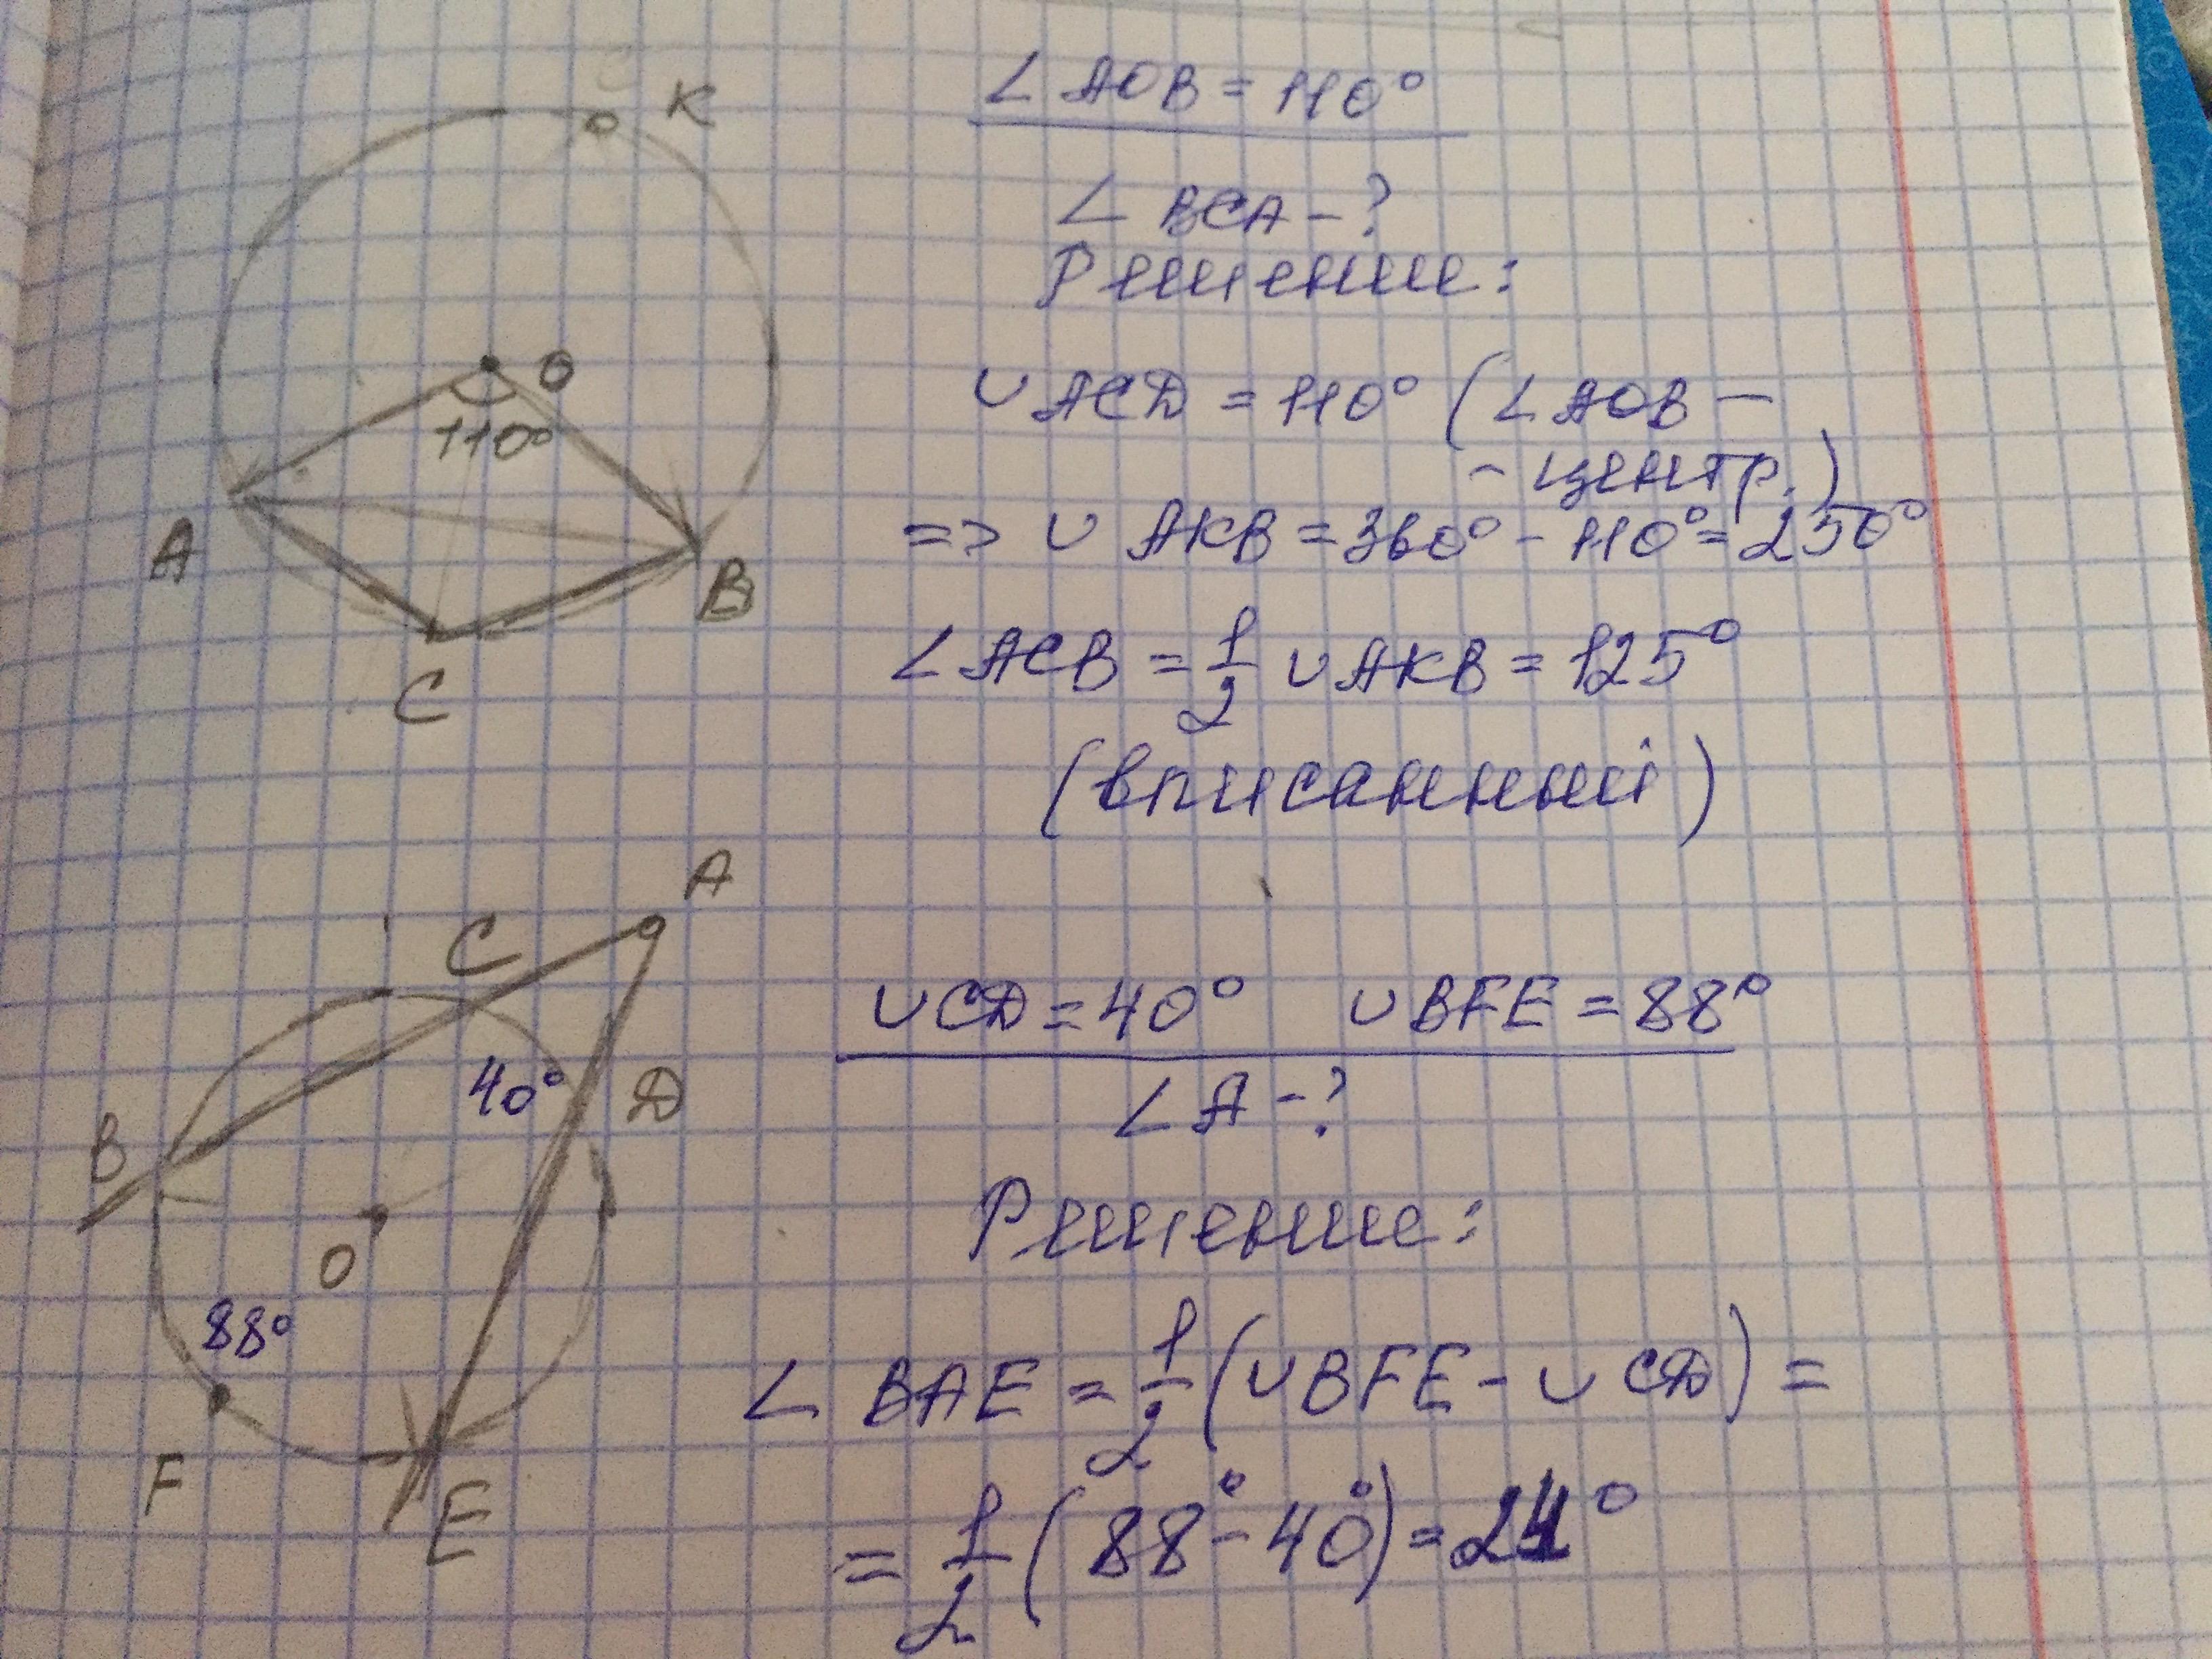 K
∠AOB = 110°
∠BCA - ?
Решение:
O
110°
A
B
C
∪ACD = 110° (∠AOB -
- центр.)
=> ∪ AKB = 360° - 110° = 250°
∠ACB = 1/2 ∪AKB = 125°
(вписанный)
A
C
40°
D
B
O
88°
F
E
∪CD = 40° ∪BFE = 88°
∠A - ?
Решение:
∠ BAE = 1/2 (∪BFE - ∪CD) =
= 1/2 (88° - 40°) = 24°